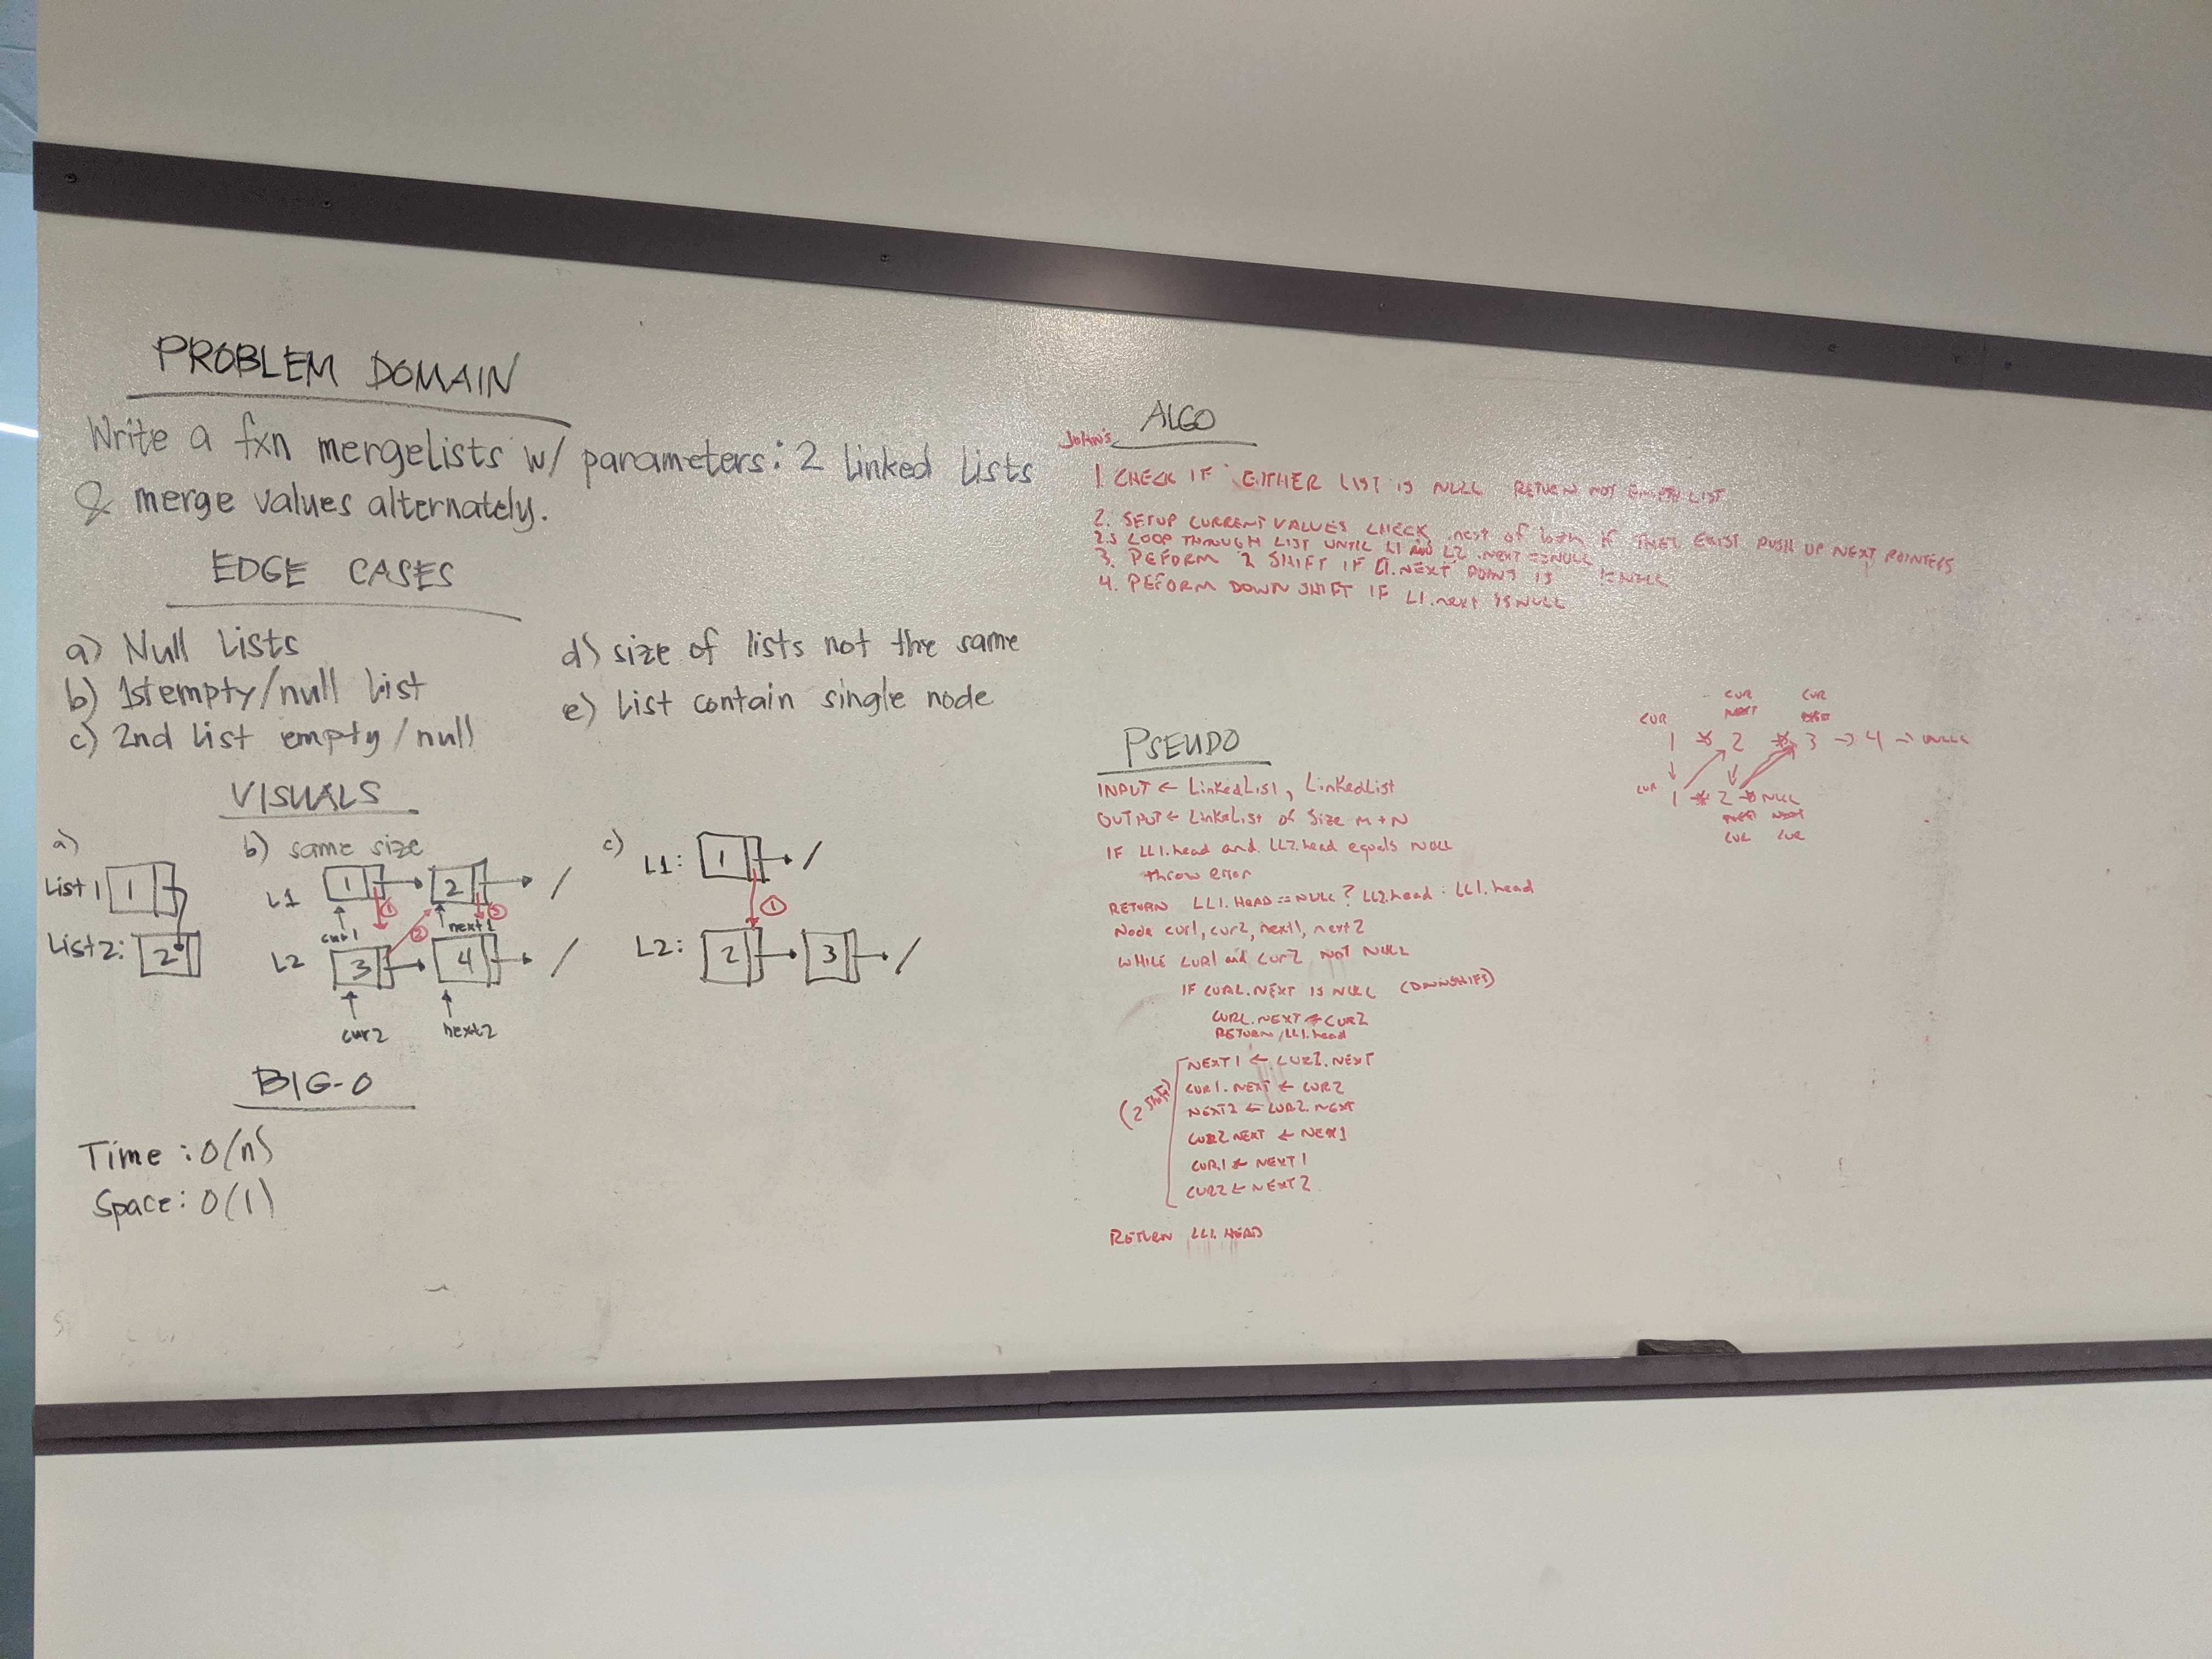 PROBLEM DOMAIN
Write a fxn mergelists w/ parameters: 2 linked lists
& merge values alternately.
EDGE CASES
a) Null Lists
b) 1st empty/null list
c) 2nd list empty/null
d) size of lists not the same
e) List contain single node
VISUALS
a)
List 1 1
List 2: 2
b) same size
L1 1 2 /
cur1 next1
① ② ③
L2 3 4 /
cur2 next2
c)
L1: 1 /
①
L2: 2 3 /
BIG-O
Time: O(n)
Space: O(1)
ALGO
JOHN'S
1 CHECK IF EITHER LIST IS NULL RETURN NOT EMPTY LIST
2. SETUP CURRENT VALUES CHECK .next of both if THEY EXIST PUSH UP NEXT POINTERS
2.5 LOOP THROUGH LIST UNTIL L1 AND L2 .NEXT == NULL
3. PEFORM 2 SHIFT IF l1.NEXT POINT IS != NULL
4. PEFORM DOWN SHIFT IF L1.next IS NULL
PSEUDO
INPUT ← LinkedList, LinkedList
OUTPUT ← LinkeList of Size M+N
IF LL1.head and LL2.head equals NULL
throw error
RETURN LL1.HEAD == NULL ? LL2.head : LL1.head
Node cur1, cur2, next1, next2
WHILE CUR1 and CUR2 NOT NULL
IF CUR1.NEXT IS NULL (DOWNSHIFT)
CUR1.NEXT ← CUR2
RETURN LL1.head
(2 shift)
NEXT1 ← CUR1.NEXT
CUR1.NEXT ← CUR2
NEXT2 ← CUR2.NEXT
CUR2.NEXT ← NEXT1
CUR1 ← NEXT1
CUR2 ← NEXT2
RETURN LL1.HEAD
CUR CUR
CUR NEXT
1 2 3 → 4 → NULL
CUR 1 2 NULL
NEXT NEXT
CUR CUR